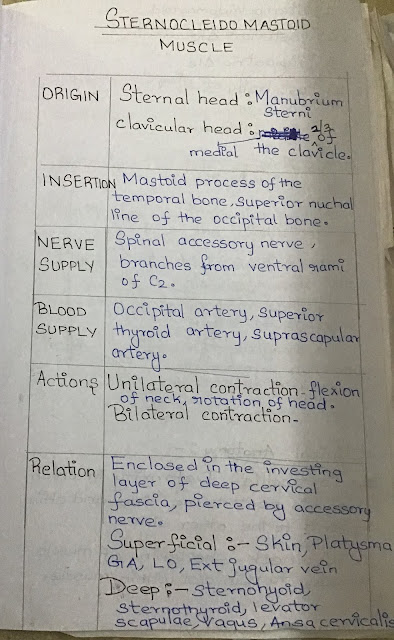 STERNOCLEIDO MASTOID
MUSCLE
ORIGIN
Sternal head : Manubrium
Sterni
clavicular head : 2/3 of
medial the clavicle.
INSERTION
Mastoid process of the
temporal bone, superior nuchal
line of the occipital bone.
NERVE
SUPPLY
Spinal accessory nerve,
branches from ventral rami
of C2.
BLOOD
SUPPLY
Occipital artery, Superior
thyroid artery, suprascapular
artery.
Actions
Unilateral contraction - flexion
of neck, rotation of head.
Bilateral contraction -
Relation
Enclosed in the investing
layer of deep cervical
fascia, pierced by accessory
nerve.
Superficial :- Skin, Platysma
GA, LO, Ext jugular vein
Deep :- sternohyoid,
sternothyroid, levator
scapulae, vagus, Ansa cervicalis